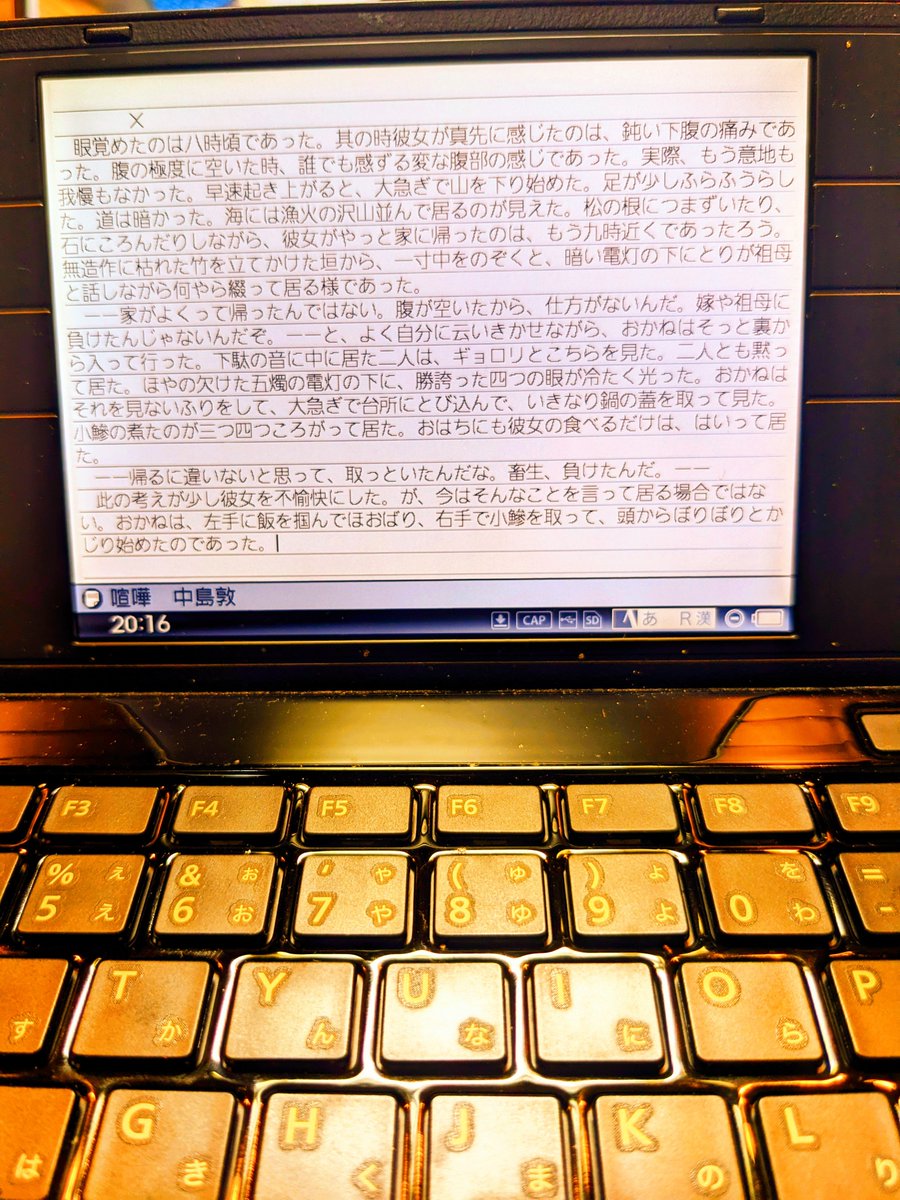 ×
眼覚めたのは八時頃であった。其の時彼女が真先に感じたのは、鈍い下腹の痛みであ
った。腹の極度に空いた時、誰でも感ずる変な腹部の感じであった。実際、もう意地も
我慢もなかった。早速起き上がると、大急ぎで山を下り始めた。足が少しふらふうらし
た。道は暗かった。海には漁火の沢山並んで居るのが見えた。松の根につまずいたり、
石にころんだりしながら、彼女がやっと家に帰ったのは、もう九時近くであったろう。
無造作に枯れた竹を立てかけた垣から、一寸中をのぞくと、暗い電灯の下にとりが祖母
と話しながら何やら綴って居る様であった。
――家がよくって帰ったんではない。腹が空いたから、仕方がないんだ。嫁や祖母に
負けたんじゃないんだぞ。――と、よく自分に云いきかせながら、おかねはそっと裏か
ら入って行った。下駄の音に中に居た二人は、ギョロリとこちらを見た。二人とも黙っ
て居た。ほやの欠けた五燭の電灯の下に、勝誇った四つの眼が冷たく光った。おかねは
それを見ないふりをして、大急ぎで台所にとび込んで、いきなり鍋の蓋を取って見た。
小鰺の煮たのが三つ四つころがって居た。おはちにも彼女の食べるだけは、はいって居
た。
――帰るに違いないと思って、取っといたんだな。畜生、負けたんだ。――
此の考えが少し彼女を不愉快にした。が、今はそんなことを言って居る場合ではな
い。おかねは、左手に飯を掴んでほおばり、右手で小鰺を取って、頭からぼりぼりとか
じり始めたのであった。
喧嘩 中島敦
20:16 CAP SD あ R漢
F3 F4 F5 F6 F7 F8 F9
% ぇ & ぉ ' ゃ ( ゅ ) ょ を =
5 え 6 お 7 や 8 ゆ 9 よ 0 わ -
T Y U I O P
す か ん な に ら
G H J K L
は き く ま の り